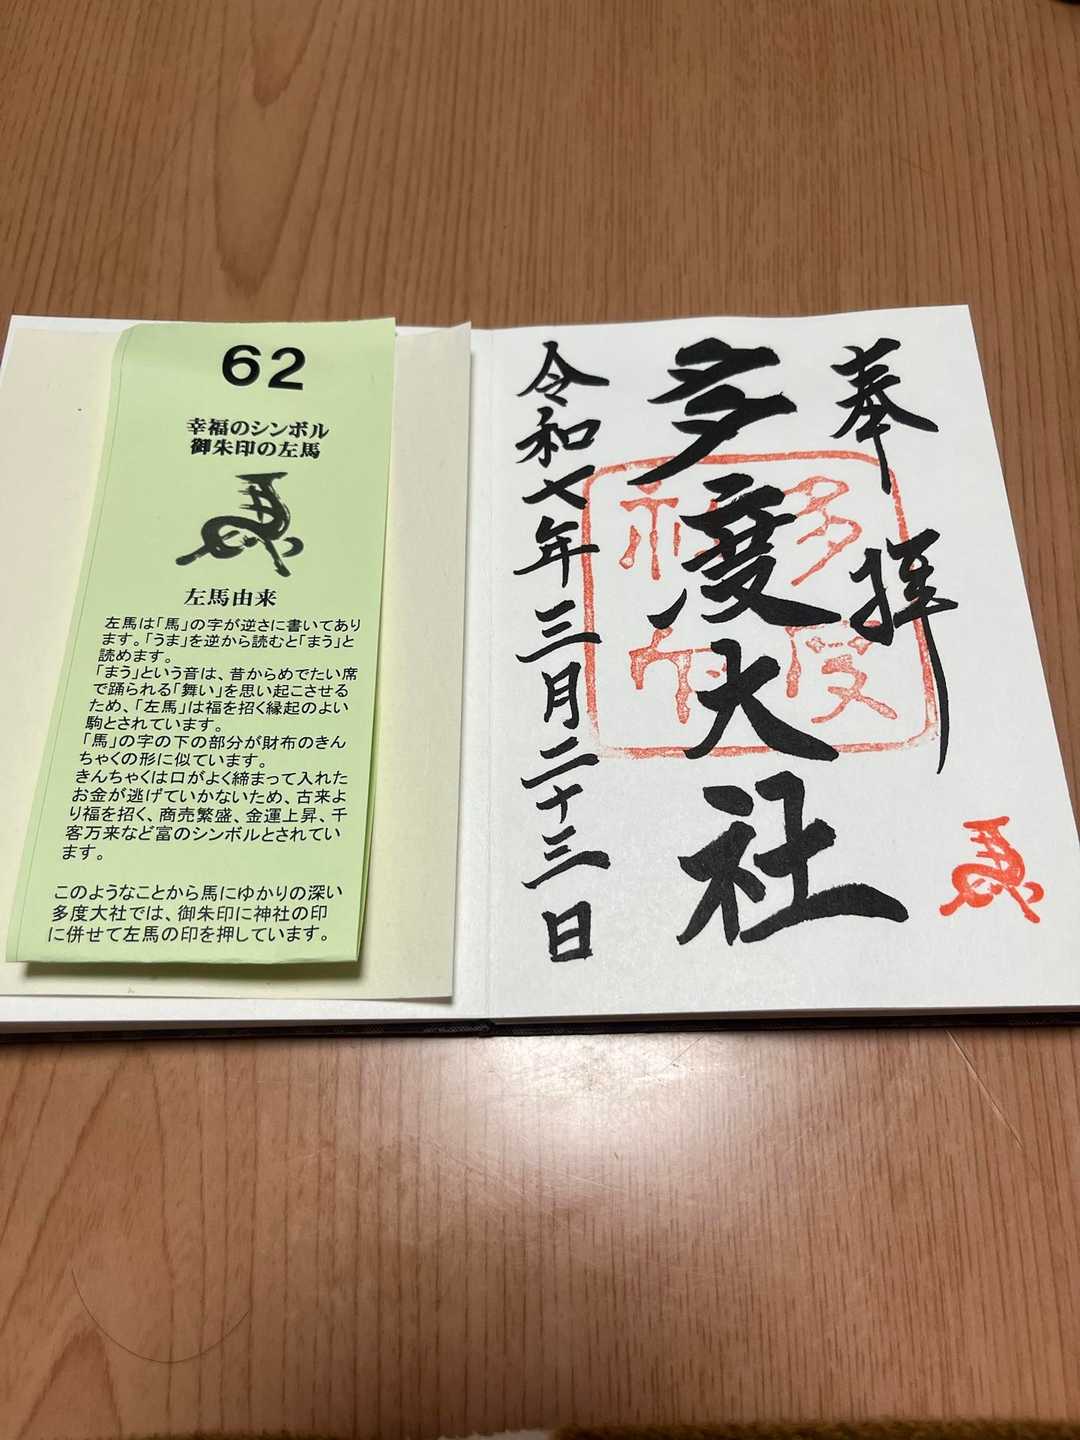 62
幸福のシンボル
御朱印の左馬
左馬由来
左馬は「馬」の字が逆さに書いてあり
ます。「うま」を逆から読むと「まう」と
読めます。
「まう」という音は、昔からめでたい席
で踊られる「舞い」を思い起こさせる
ため、「左馬」は福を招く縁起のよい
駒とされています。
「馬」の字の下の部分が財布のきん
ちゃくの形に似ています。
きんちゃくは口がよく締まって入れた
お金が逃げていかないため、古来よ
り福を招く、商売繁盛、金運上昇、千
客万来など富のシンボルとされてい
ます。
このようなことから馬にゆかりの深い
多度大社では、御朱印に神社の印
に併せて左馬の印を押しています。
奉拝
多度大社
令和七年三月二十三日
多度
神社